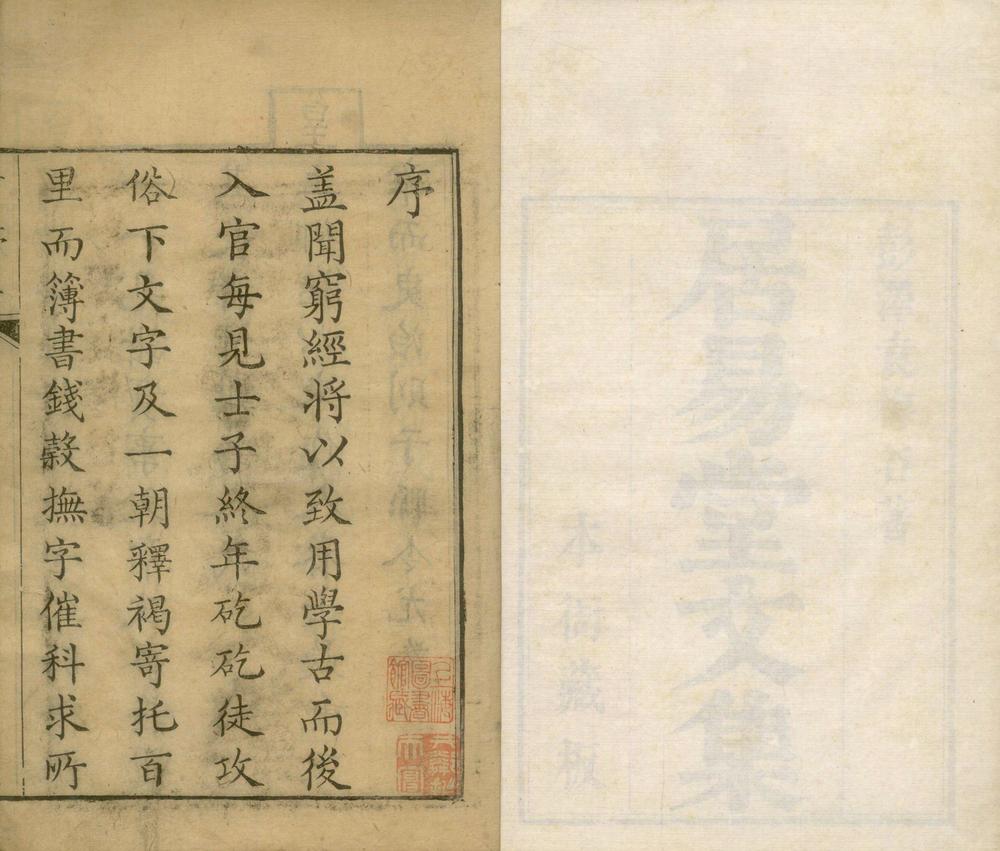 居易堂文集
本衙藏板
序
蓋聞窮經將以致用學古而後
入官每見士子終年矻矻徒攻
俗下文字及一朝釋褐寄托百
里而簿書錢穀撫字催科求所